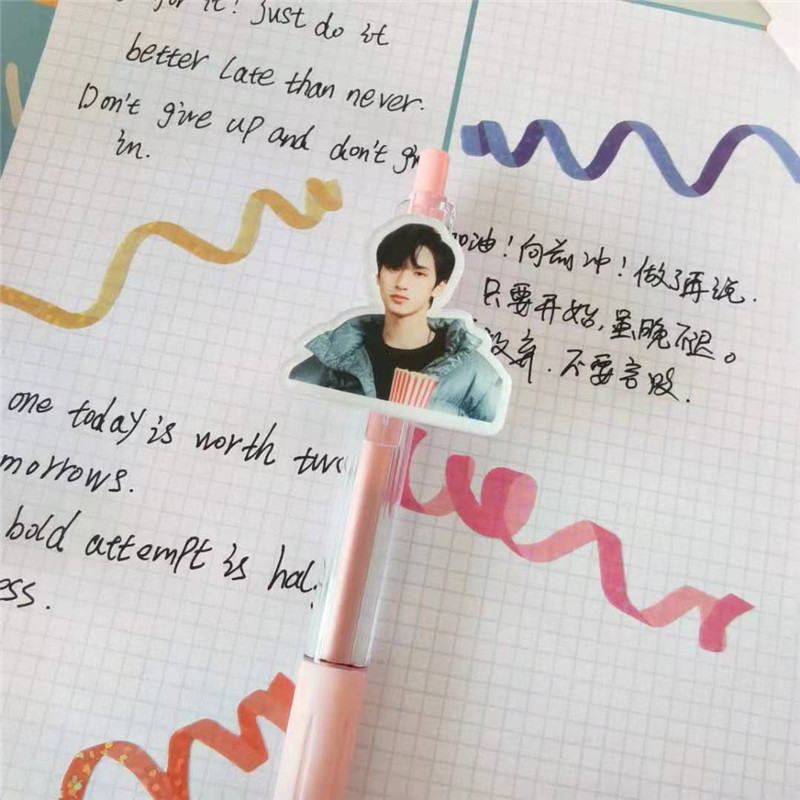 for it! Just do it
better late than never.
Don't give up and don't
in.
one today is worth two
morrows.
bold attempt is
ess.
油！向前冲！做了再说.
只要开始,虽晚不迟。
放弃.不要言败.